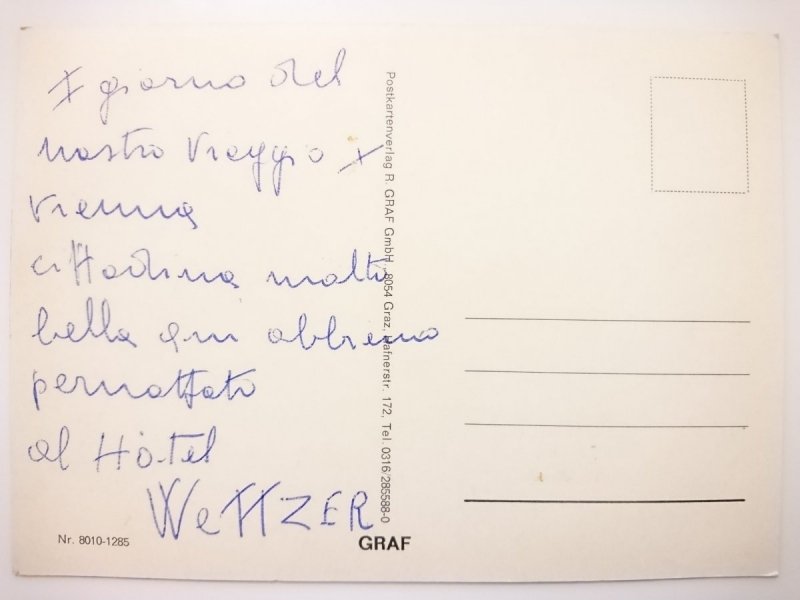 I giorno del
nostro viaggio x
Vienna
cittadina molto
bella qui abbiamo
pernottato
al Hotel
WeTTZER
Postkartenverlag R. GRAF GmbH, 8054 Graz, Hafnerstr. 172, Tel. 0316/285588-0
Nr. 8010-1285
GRAF